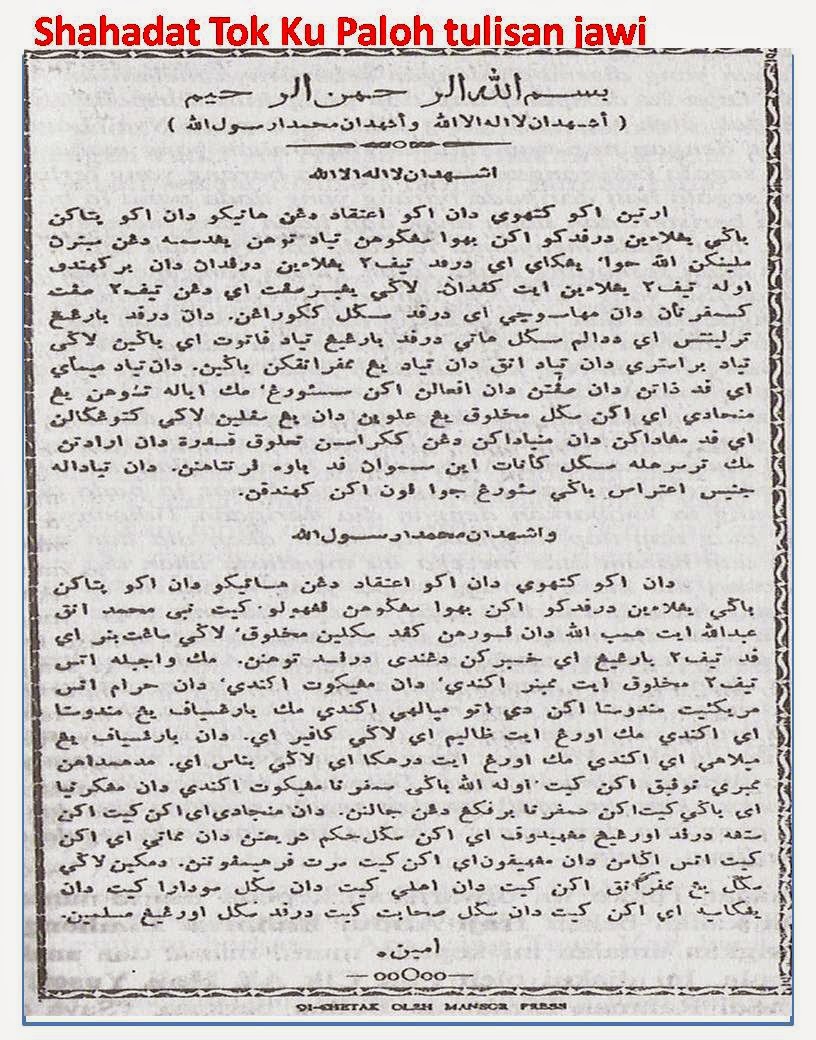 Shahadat Tok Ku Paloh tulisan jawi
بسم الله الرحمن الرحيم
( أشهد ان لا اله الا الله وأشهد ان محمدا رسول الله )
اشهد ان لا اله الا الله
ارتين اكو كتهوي دان اكو اعتقاد دڠن هاتيكو دان اكو پتاكن
باݢي يڠلاءين درفدكو اكن بهوا سڠݢوهن تياد توهن يڠدسمبه دڠن سبنرڽ
ملينكن الله جوا٬ يڠكاي اي درفد تيف٢ يڠلاءين درفدان دان بركهندق
اوله تيف٢ يڠلاءين ايت كفدان. لاݢي يڠبرصفت اي دڠن تيف٢ صفت
كسمفرنأن دان مهاسوچي اي درفد سݢل ككورڠن. دان درفد بارڠيڠ
ترلينتس اي ددالم سݢل هاتي درفد بارڠيڠ تياد فاتوت اي باݢين لاݢي
تياد براستري دان تياد انق دان تياد يڠ ممفرانقكن باݢين. دان تياد ميمڤأي
اي فد ذاتن دان صفتن دان افعالن اكن سسئورڠ٬ مك اياله توهن يڠ
منجادي اي اكن سݢل مخلوق يڠ علوين دان يڠ سفلين لاݢي كتوڠݢالن
اي فد مڠاداكن دان منياداكن دڠن ككراسن تعلوق قدرة دان ارادتن
مك ترسرهله سݢل كأنات اين سموان فد باوه فرنتاهن. دان تيادله
جنيس اعتراض باݢي سئورڠ جوا فون اكن كهندقن.
واشهد ان محمدا رسول الله
دان اكو كتهوي دان اكو اعتقاد دڠن هاتيكو دان اكو پتاكن
باݢي يڠلاءين درفدكو اكن بهوا سڠݢوهن فڠهولو كيت نبي محمد انق
عبدالله ايت همب الله دان فسورهن كفد سكلين مخلوق٬ لاݢي ساڠت بنر اي
فد تيف٢ بارڠيڠ اي خبركن دڠندي درفد توهنن. مك واجبله اتس
تيف٢ مخلوق ايت ممبنر اكندي٬ دان مڠيكوت اكندي٬ دان حرام اتس
مريكئيت مندوستا اكن دي اتو ميالهي اكندي مك بارڠسياف يڠ مندوستا
اي اكندي مك اورڠ ايت ظاليم اي لاݢي كافير اي. دان بارڠسياف يڠ
ميلاهي اي اكندي مك اورڠ ايت درهكا اي لاݢي بناس اي. مدهمداهن
ممبري توفيق اكن كيت اوله الله باݢي سمفرنا مڠيكوت اكندي دان مڠكرنيا
اي باݢي كيت اكن سمفرنا برفݢڠ دڠن جالنن. دان منجادي اي اكن كيت اكن
ستڠه درفد اورڠيڠ مڠهيدوف اي اكن سݢل حكم شريعتن دان مماتي اي اكن
كيت اتس اݢامن دان مڠهيمفون اي اكن كيت سرت فرهيمفونن. دمكين لاݢي
سݢل يڠ ممفرانق اكن كيت دان اهلي كيت دان سݢل سودارا كيت دان
يڠكاسيه اي اكن كيت دان سݢل صحابت كيت درفد سݢل اورڠيڠ مسلمين.
امين.
ooOoo
DI-CHETAK OLEH MANSOR PRESS